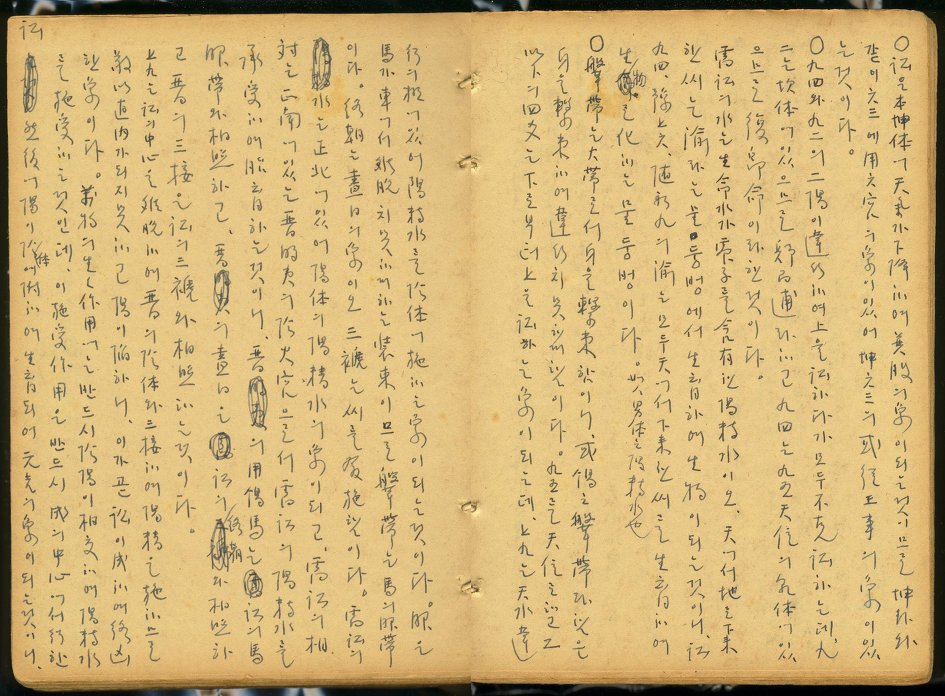 ○訟은 本坤体에 天素가 下降하여 의 象이 되는 것이므로 坤卦와
같이 六三에 用六宮의 象이 있어 坤六三의 或從王事의 象이 있
는 것이다.
○九四와 九二의 二陽이 違行하여 上을 訟하다가 모두 不克訟하는데, 九
二는 坎体에 있으므로 歸而逋라 하고 九四는 九五天位의 乾体에 있
으므로 復卽命이라 한 것이다.
需訟의 水는 生命水가 震子를 含有한 陽精水이오, 天에서 地로 下来
한 씨는 渝라는 물둥벙에서 生育하여 生物이 되는 것이니, 訟
九四, 豫上六, 隨初九의 渝는 모두 天에서 下来한 씨를 生育하여
生物로 化하는 물둥벙이다. 男体之陽精水也
○鞶帶는 大帶로서 身을 繫束함이니, 或錫之鞶帶라 함은
身을 繫束하여 違行치 못하게 함이다. 九五로 天位를 삼고
以下의 四爻는 下로부터 上을 訟하는 象이 되는데, 上九는 天水違
訟
行의 極에 있어 陽精水를 陰体에 施하는 象이 되는 것이다. 服은
馬가 車에서 離脫치 못하게 하는 裝束이므로 鞶帶는 馬의 服帶
이다. 終朝는 晝日의 象이오 三褫는 씨를 發施함이다. 需訟의
水는 正北에 있어 陽体의 陽精水의 象이 되고, 需訟의 相
対는 正南에 있는 晋明夷의 陰火宮으로서 需訟의 陽精水를
承受하여 胎育하는 것이니, 晋의 用錫馬는 訟의 馬
服帶와 相照하고, 晋의 晝日은 訟의 終朝와 相照하
고 晋의 三接은 訟의 三褫와 相照하는 것이다.
上九는 訟의 中心을 離脫하여 晋의 陰体와 三接하여 陽精을 施하므로
敵以道内가 되지 못하고 陽이 陷하니, 이가 곧 訟이 成하여 終凶
한 象이다. 萬物의 生生作用에는 반드시 陰陽이 相交하여 陽精水
를 施受하는 것인데, 이 施受作用은 반드시 成의 中心에서 行한
然後에 陽이 陰体에 附하여 生育되어 元吉의 象이 되는 것이니,